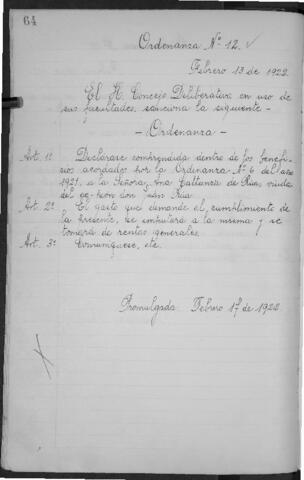 64
Ordenanza Nº 12.
Febrero 13 de 1922.
El H. Concejo Deliberativo en uso de
sus facultades, sanciona la siguiente -
- Ordenanza -
Art. 1º Declárase comprendida dentro de los benefi-
cios acordados por la Ordenanza Nº 6 del año
1921, a la Señora Ana de Rua, viuda
del ex-peon don Juan Rua.
Art. 2º El gasto que demande el cumplimiento de
la presente, se imputará a la misma y se
tomará de rentas generales.
Art. 3º Comuníquese, etc.
Promulgada Febrero 17 de 1922